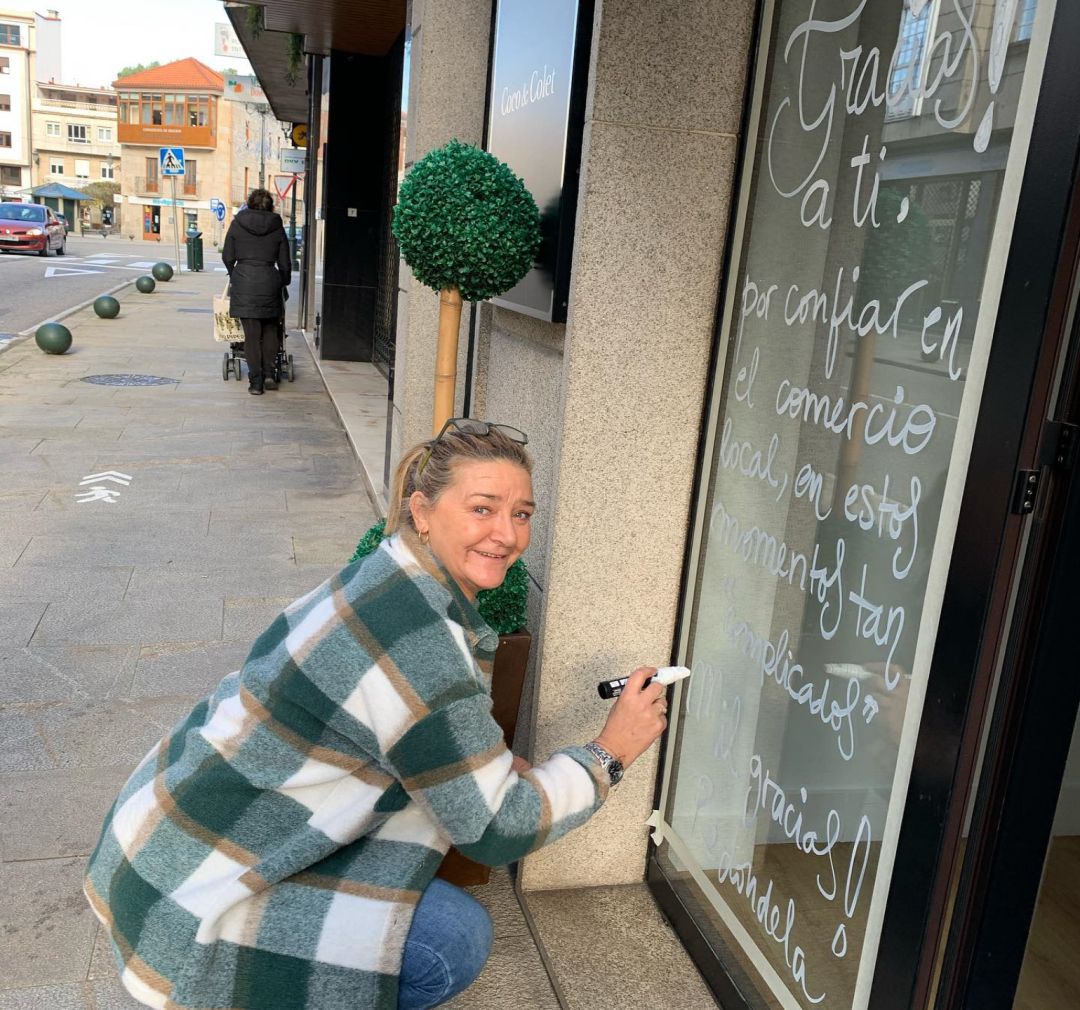 Coco & Colet
Gracias!
a ti,
por confiar en
el comercio
local, en estos
momentos tan
"complicados"
mil gracias!
Redondela